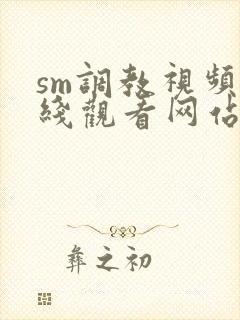 sm調教視頻
綫觀看网佔
彝之初